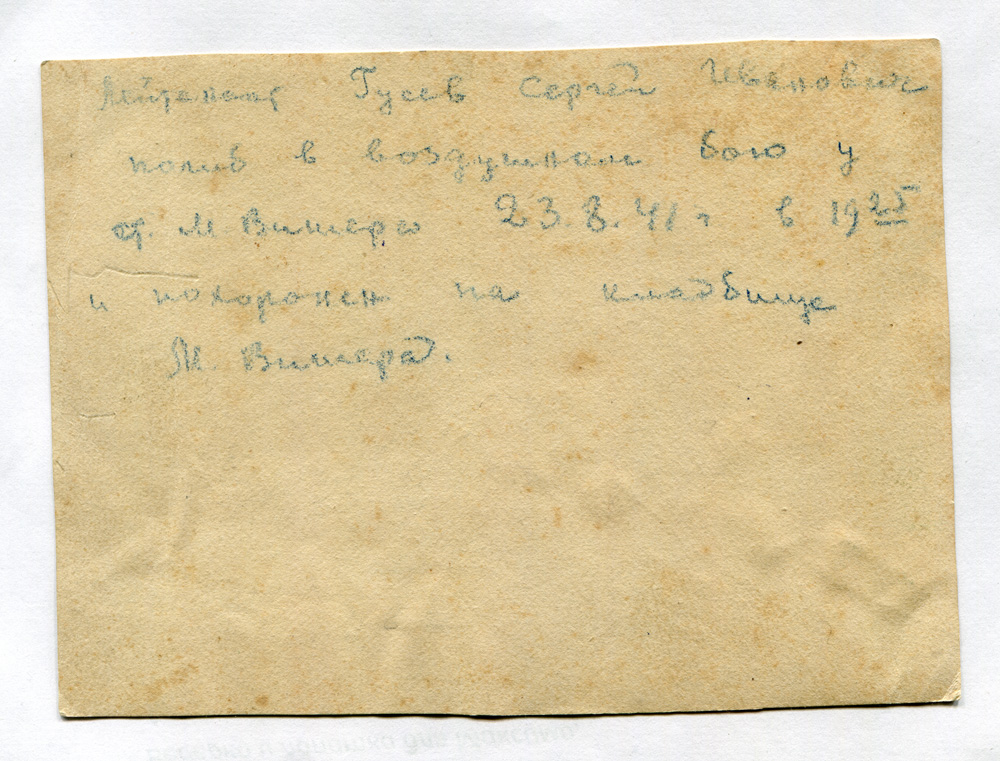 Лейтенант Гусев Сергей Иванович
погиб в воздушном бою у
ст. М. Вишера 23.8.41 г в 19 25
и похоронен на кладбище
М. Вишера.